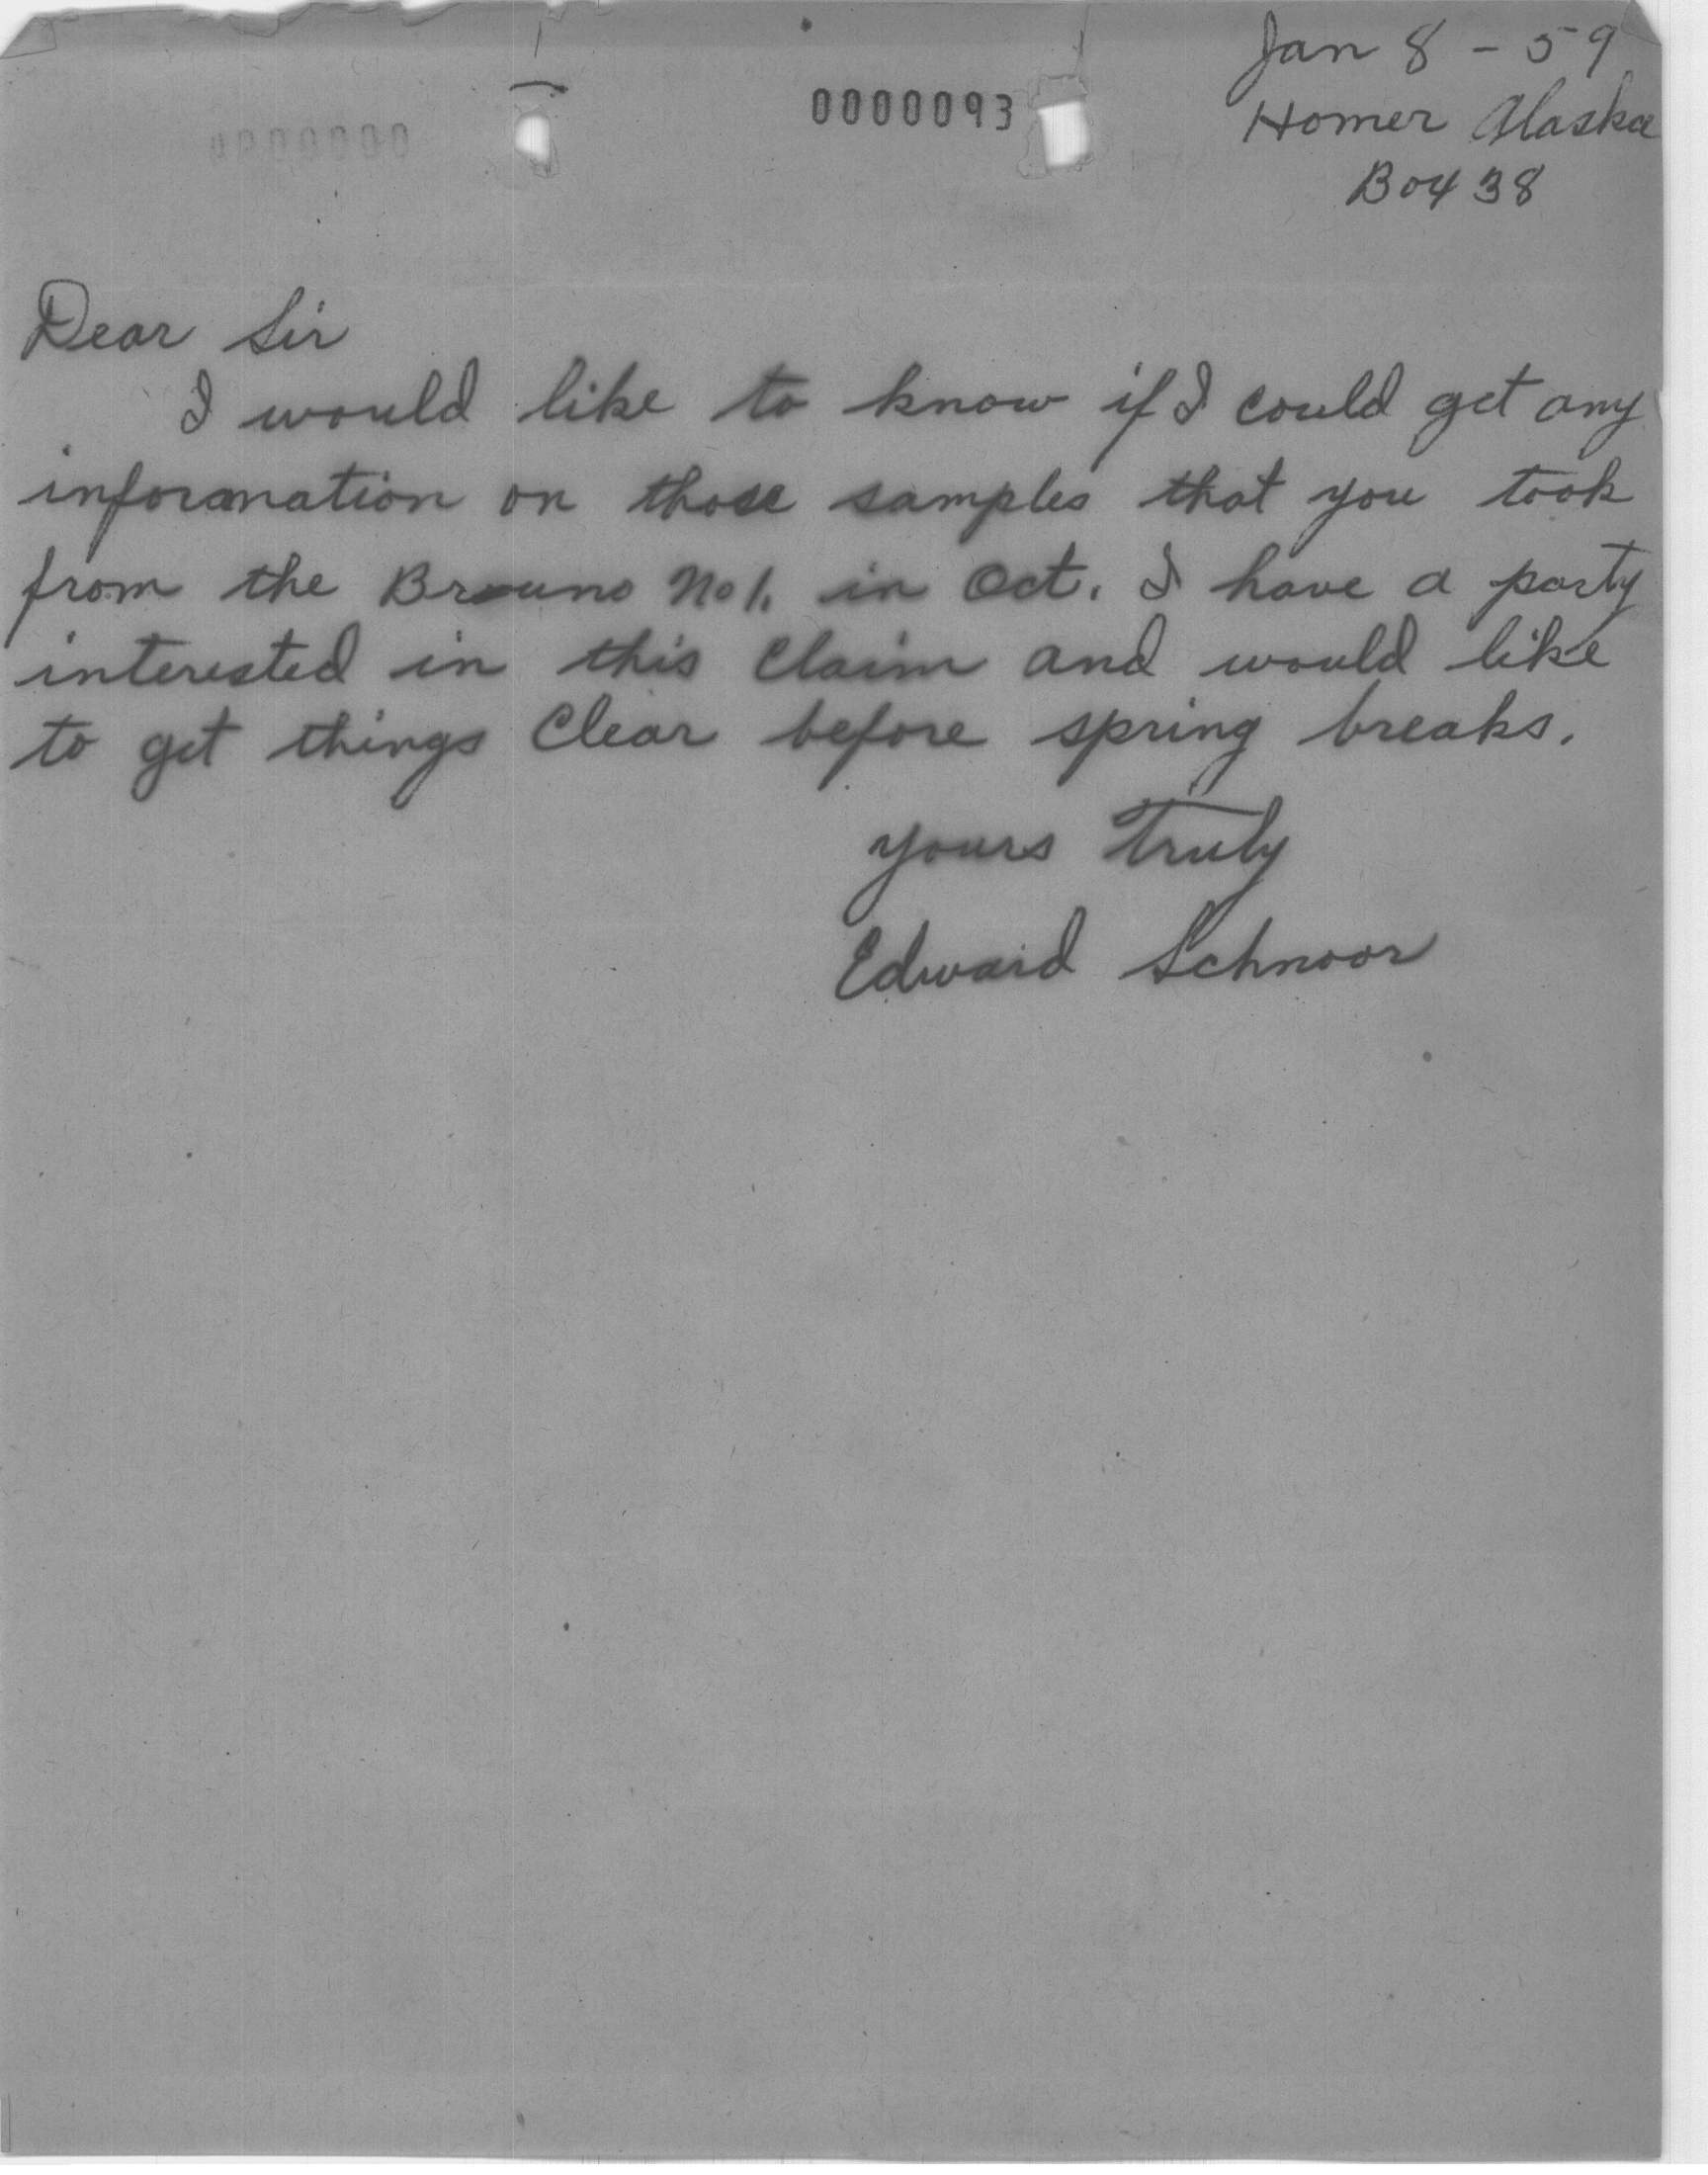 Jan 8 - 59
0000093
Homer Alaska
0000000
Box 38
Dear Sir
I would like to know if I could get any
information on those samples that you took
from the Bruno No 1. in Oct. I have a party
interested in this claim and would like
to get things clear before spring breaks.
yours Truly
Edward Schnoor